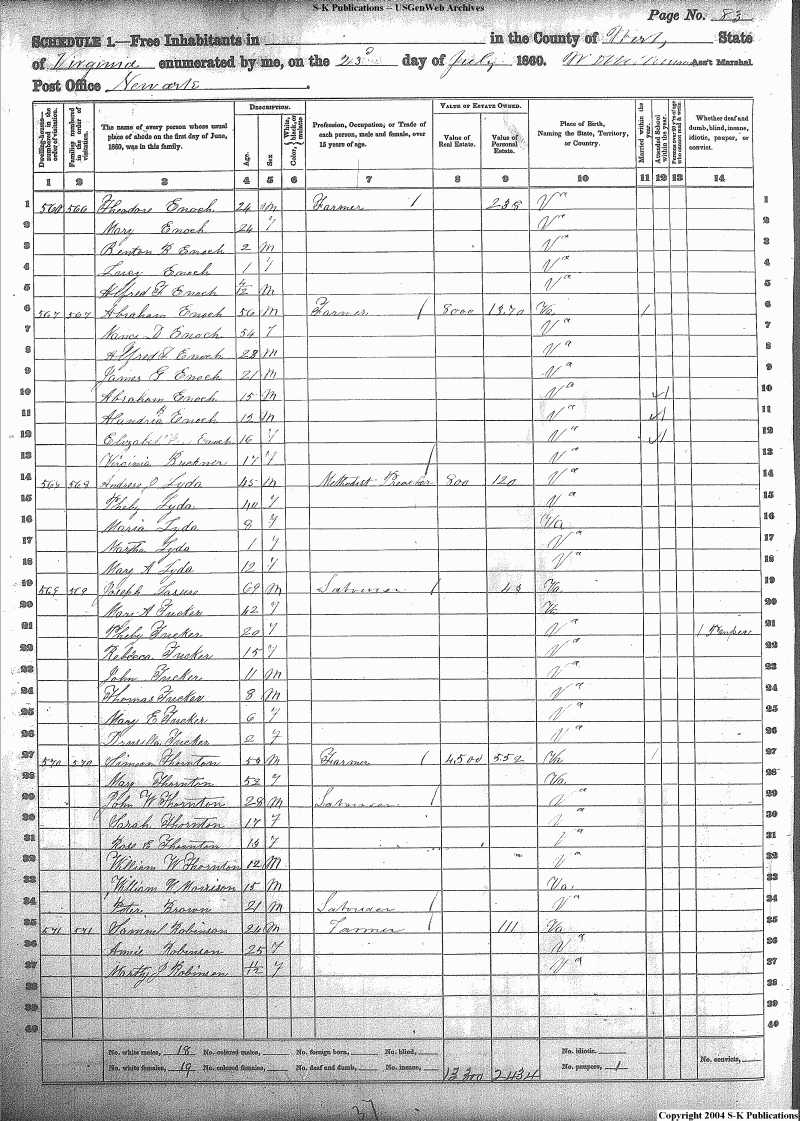 S-K Publications – USGenWeb Archives
Page No. 83
SCHEDULE 1.—Free Inhabitants in in the County of Wirt, State
of Virginia enumerated by me, on the 23 day of July 1860. Ass't Marshal.
Post Office Newark
Dwelling-houses numbered in the order of visitation. Families numbered in the order of visitation. The name of every person whose usual place of abode on the first day of June, 1860, was in this family. DESCRIPTION. Age. Sex. Color, White, black, or mulatto. Profession, Occupation, or Trade of each person, male and female, over 15 years of age. VALUE OF ESTATE OWNED. Value of Real Estate. Value of Personal Estate. Place of Birth, Naming the State, Territory, or Country. Married within the year. Attended School within the year. Persons over 20 y'rs of age who cannot read & write. Whether deaf and dumb, blind, insane, idiotic, pauper, or convict.
1 2 3 4 5 6 7 8 9 10 11 12 13 14
1 566 566 Theodore Enoch 24 M Farmer / 238 Va 1
2 Mary Enoch 24 F Va 2
3 Benton R Enoch 2 M Va 3
4 Enoch 1 F Va 4
5 Alfred F Enoch 4/12 M Va 5
6 567 567 Abraham Enoch 56 M Farmer / 8000 1370 Va. / 6
7 Nancy D Enoch 54 F Va 7
8 Alfred Enoch 28 M Va 8
9 James G Enoch 21 M Va 9
10 Abraham Enoch 15 M Va / 10
11 Enoch 12 M Va / 11
12 Elizabeth Enoch 16 F Va / 12
13 Virginia Buckner 17 F Va 13
14 568 568 Andrew J Lyda 45 M Methodist Preacher / 800 120 Va 14
15 Pheby Lyda 40 F Va 15
16 Maria Lyda 8 F Va 16
17 Martha Lyda 1 F Va 17
18 Mary A Lyda 12 F Va 18
19 569 569 Joseph 69 M Labourer / 43 Va. 19
20 Mary A Tucker 42 F Va 20
21 Pheby Tucker 20 F Va 1 Paupers 21
22 Rebecca Tucker 15 F Va 22
23 John Tucker 11 M Va 23
24 Thomas Tucker 8 M Va 24
25 Mary E Tucker 6 F Va 25
26 Drusilla Tucker 2 F Va 26
27 570 570 Simeon Thornton 59 M Farmer / 4500 552 Va / 27
28 Mary Thornton 52 F Va. 28
29 John W Thornton 28 M Labourer / Va 29
30 Sarah Thornton 17 F Va 30
31 Rose E Thornton 13 F Va 31
32 William W Thornton 12 M Va 32
33 William W Morrison 15 M Va. 33
34 Peter Brown 21 M Labourer / Va 34
35 571 571 Samuel Robinson 24 M Farmer / 111 Va 35
36 Amie Robinson 25 F Va 36
37 Marthy J Robinson 1/12 F Va 37
38 38
39 39
40 40
No. white males, 18 No. colored males, No. foreign born, No. blind, No. idiotic.
No. white females, 19 No. colored females, No. deaf and dumb, No. insane, 13300 2434 No. paupers, 1 No. convicts,
37
Copyright 2004 S-K Publications